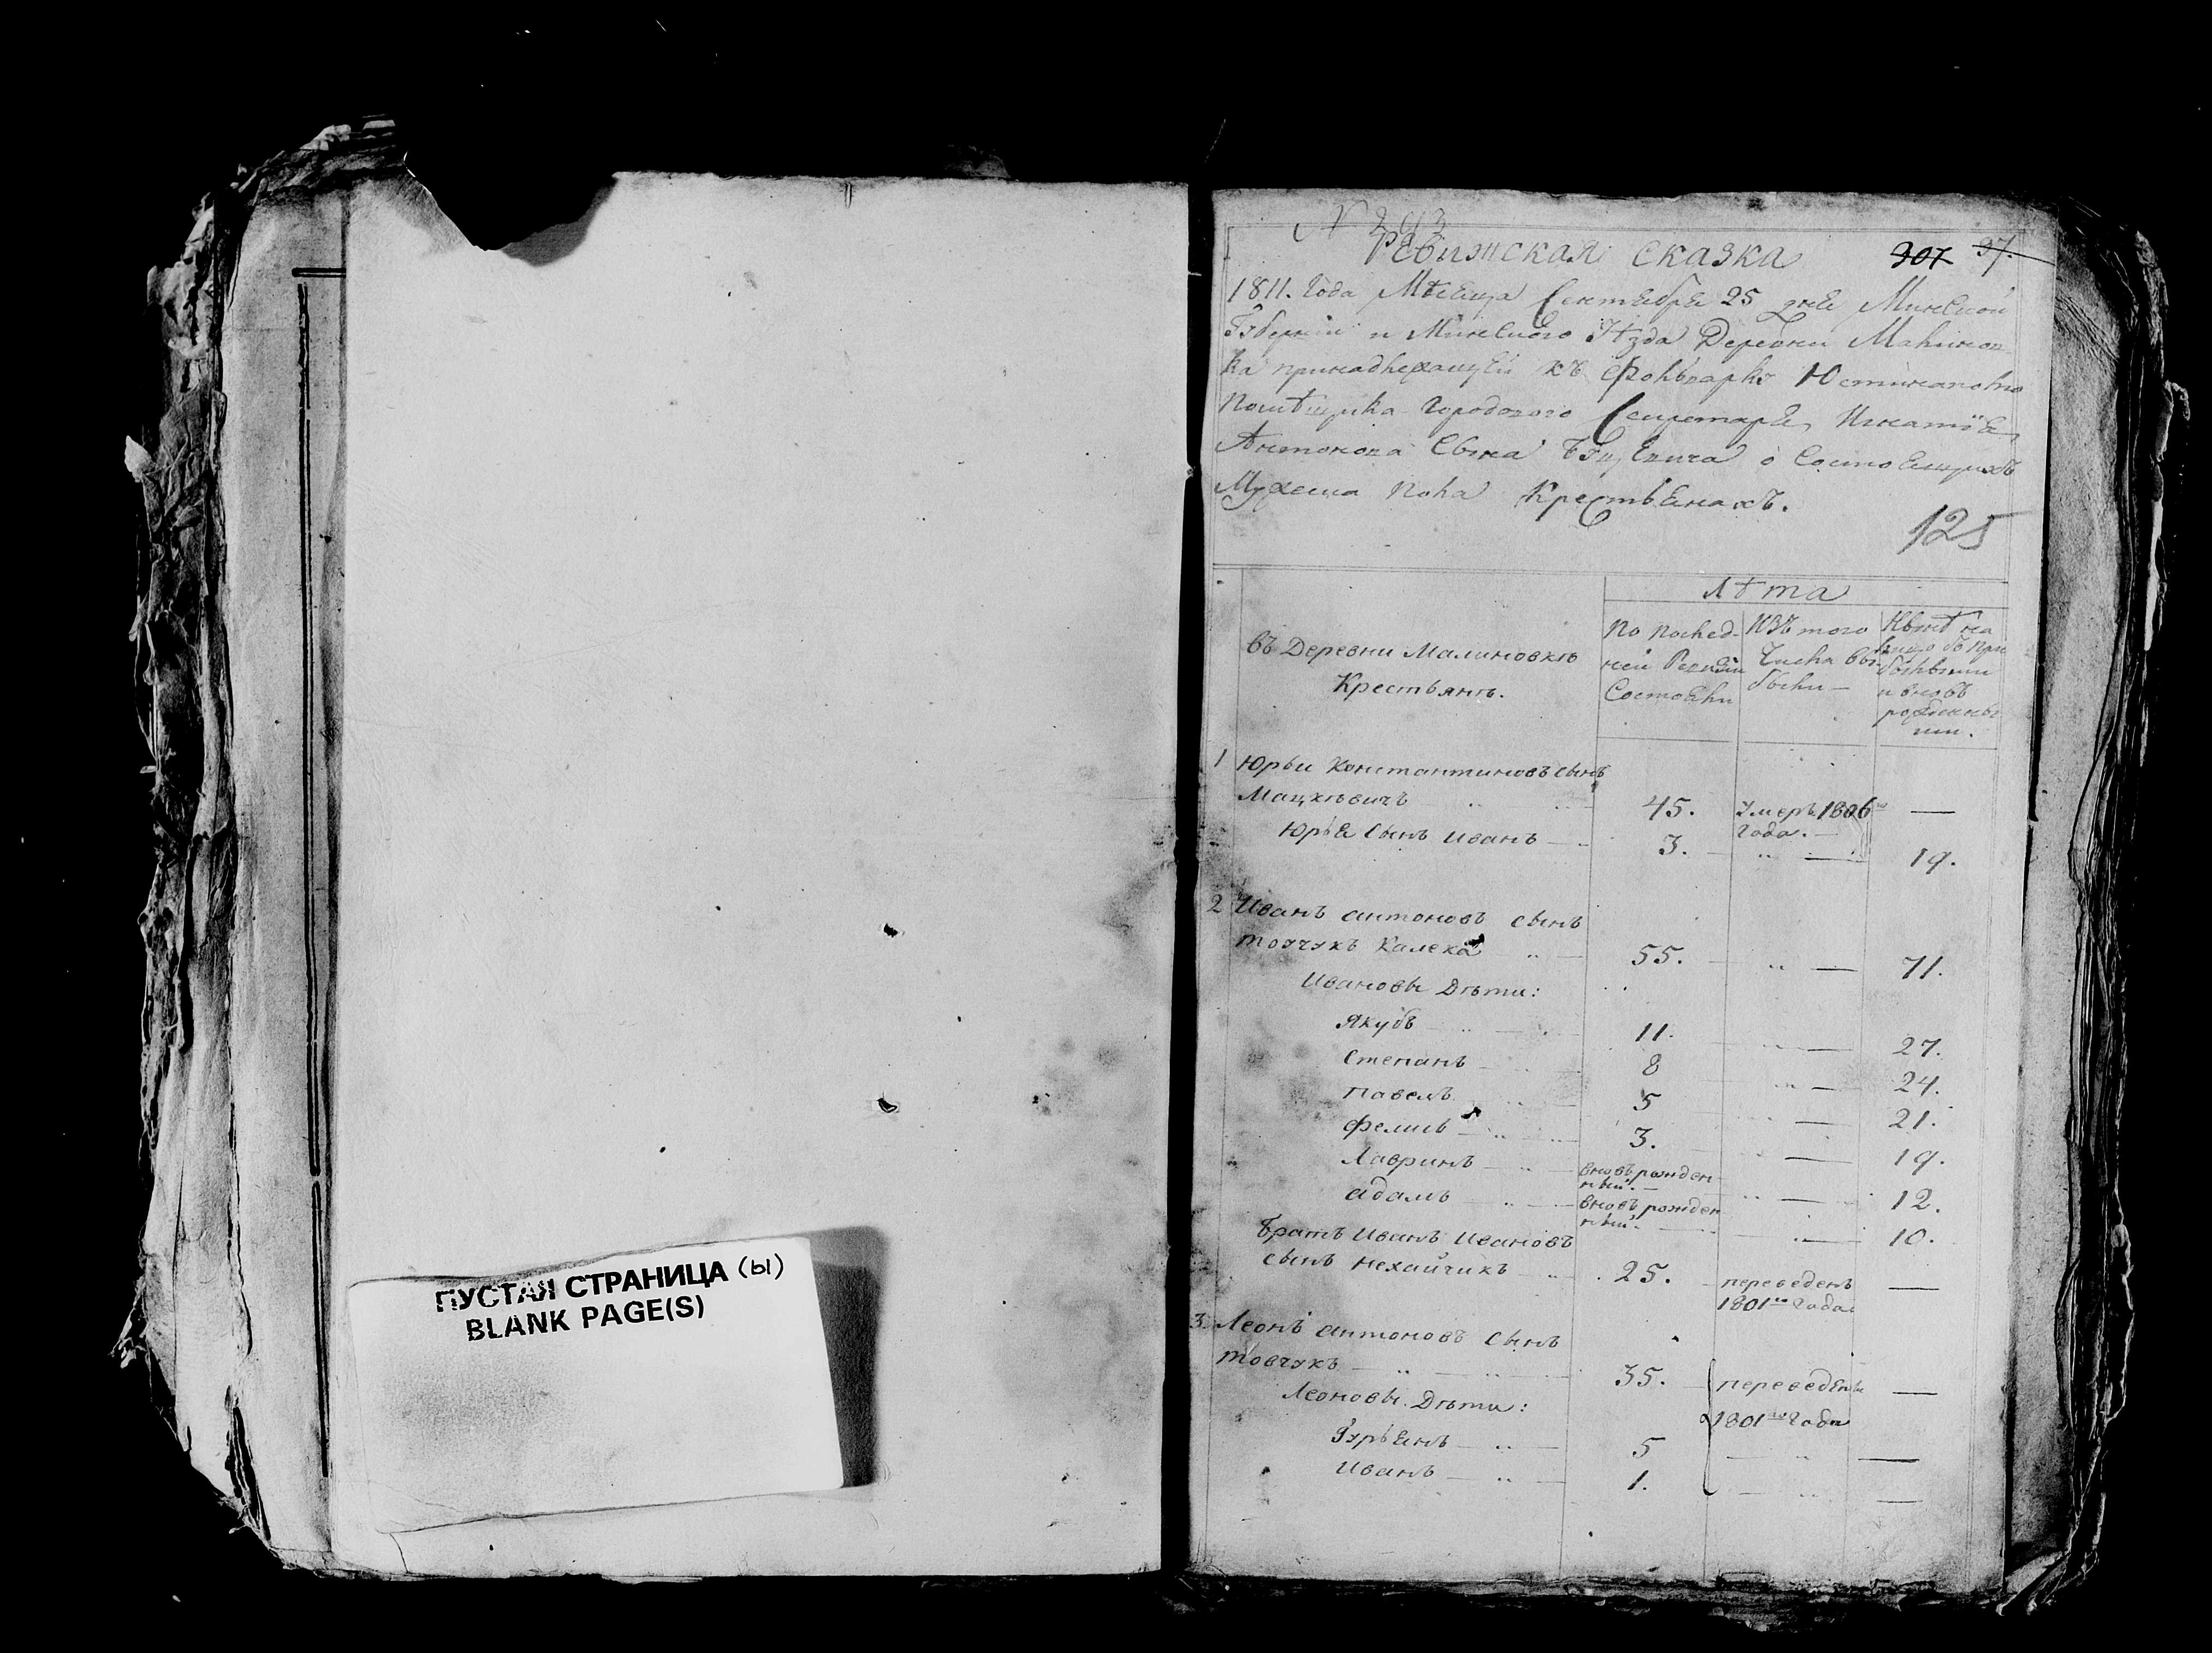 ПУСТАЯ СТРАНИЦА (Ы)
BLANK PAGE(S)
Ревижская сказка
307 37.
1811. Года Мѣсяца Сентября 25 дня Минской
Губернии и Минского Уѣзда Деревни Малинов
ка принадлежащей къ Фольварку
Помѣщика Городового Секретаря Игнатія
Антонова Сына о Состоящихъ
Мужеска пола Крестьянахъ.
125
Лѣта
Въ Деревни Малиновкѣ
Крестьянъ.
По послед-
ней Ревизии
Состояли
Изъ того
Числа вы-
были —
Нынѣ на
лицо съ при
бывшими
и вновь
рожденны
ми.
1 Юрьи Константиновъ сынъ
Мацкѣвичъ 45. Умеръ 1806го —
Года. —
Юрья Сынъ Иванъ — 3. — 19.
2 Иванъ антоновъ сынъ
тоучукъ Калека 55. — 71.
Ивановы Дѣти:
Якубъ 11. — 27.
Степанъ 8 — 24.
Павелъ 5 — 21.
Фелиъ 3. — 19.
Лавринъ вновь рожден
ный. — 12.
адамъ вновь рожден
ный. — 10.
Братъ Иванъ Ивановъ
сынъ нехайчикъ 25. переведенъ —
1801го Года
3. Леонъ антоновъ сынъ
товчукъ 35. переведены —
Леоновы Дѣти: 1801го Года
Гурьянъ 5 — —
Иванъ 1. — —